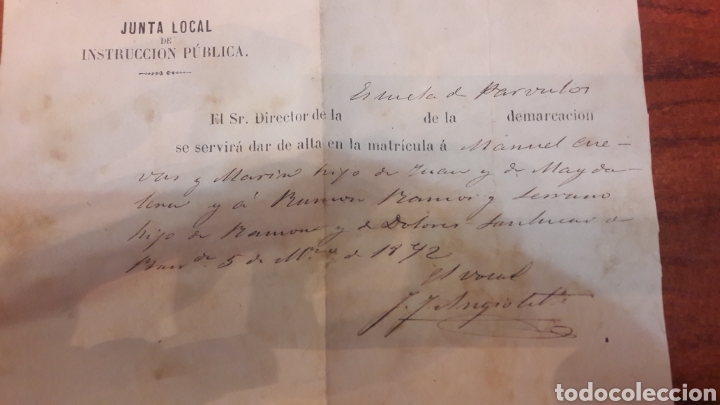 JUNTA LOCAL
DE
INSTRUCCION PÚBLICA.
Escuela de Parvulos
El Sr. Director de la de la demarcacion
se servirá dar de alta en la matrícula á Manuel Cue-
vas y Marin hijo de Juan y de Magda-
lena y á Ramon Ramos y Serrano
hijo de Ramon y de Dolores Sanlucar de
5 de de 1872
El vocal
J. J.
todocoleccion